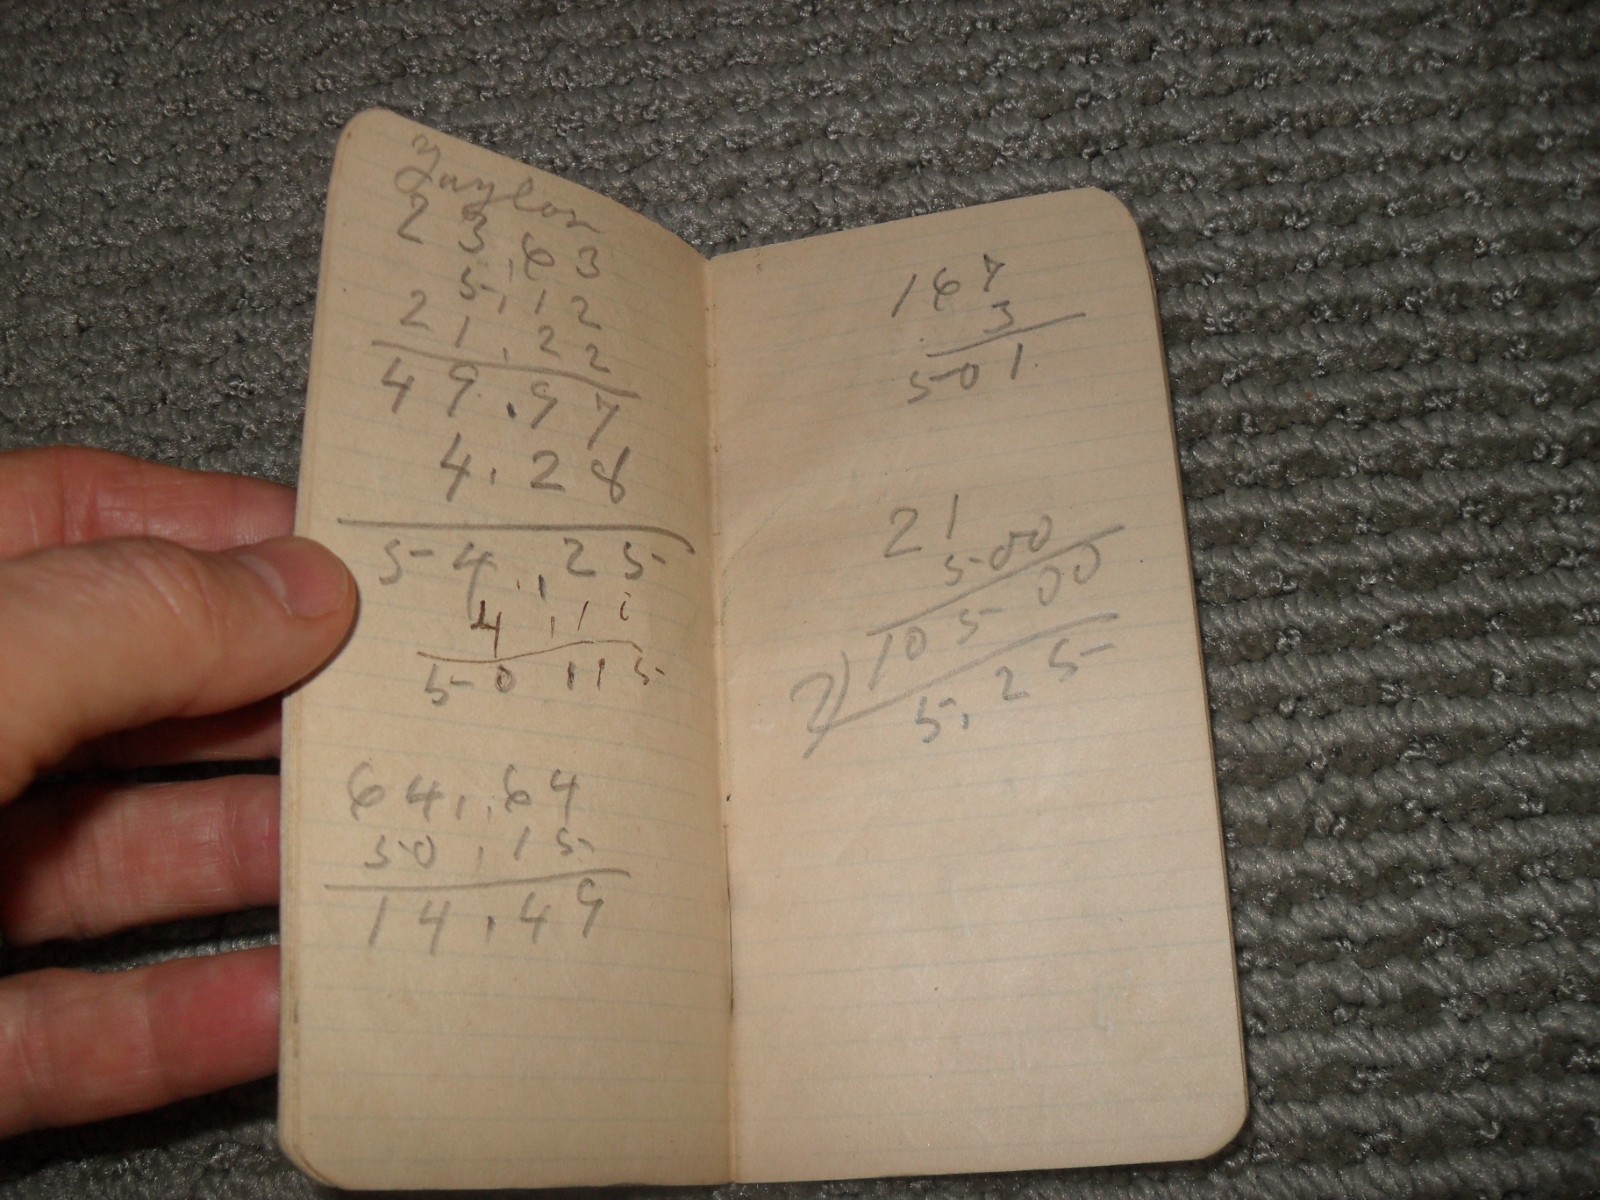 Taylor
23.63
5.12
21.22
49.97
4.28
54.25
4.10
50.15
64.64
50.15
14.49
167
3
501
21
500
2)10500
5.25